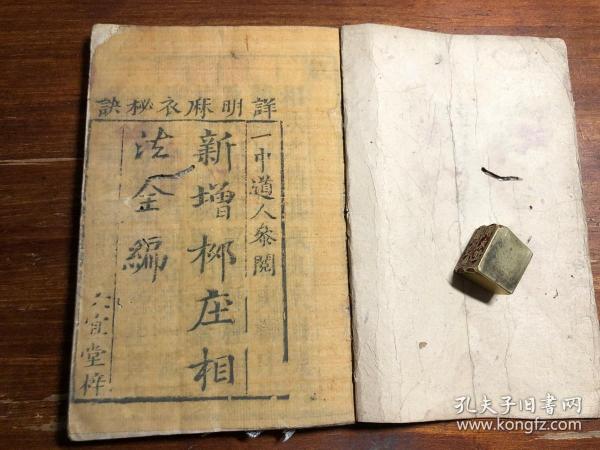 詳明麻衣秘訣
一中道人叅閱
新增柳庄相
法全編
六宜堂梓
孔夫子旧书网
www.kongfz.com